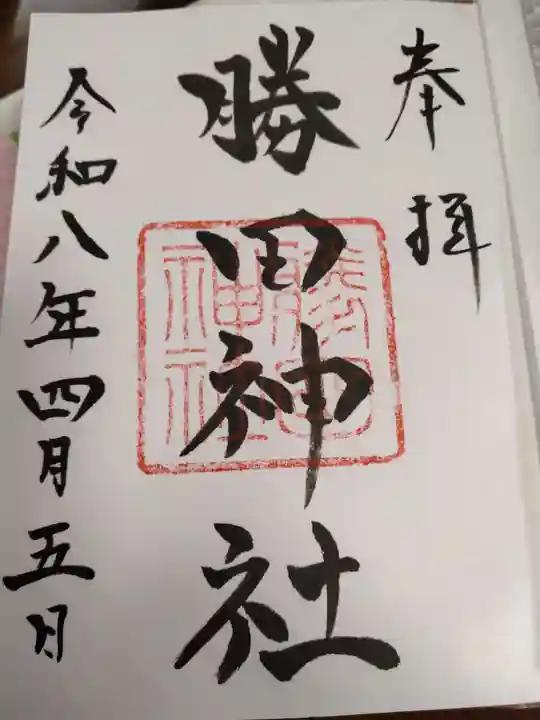 奉拝
勝田神社
勝田
神社
令和八年四月五日